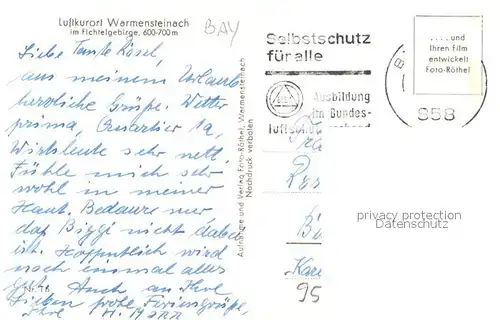 Luftkurort Warmensteinach
im Fichtelgebirge, 600-700 m
BAY
Liebe Tante Rösel,
aus meinem Urlaub
herzliche Grüße. Wetter
prima, Quartier 1a,
Wirtsleute sehr nett.
Fühle mich sehr
wohl in meiner
Haut. Bedaure nur
daß Biggi nicht dabei
ist. Hoffentlich wird
noch einmal alles
gut. Auch an Ihre
Lieben frohe Feriengrüße,
Ihre H.
Nr. 16
Aufnahme und Verlag Foto-Röthel, Warmensteinach
Nachdruck verboten
Selbstschutz
für alle
Ausbildung
im Bundes-
luftschutzverband
B
858
.... und
Ihren Film
entwickelt
Foto-Röthel
privacy protection
Datenschutz
95